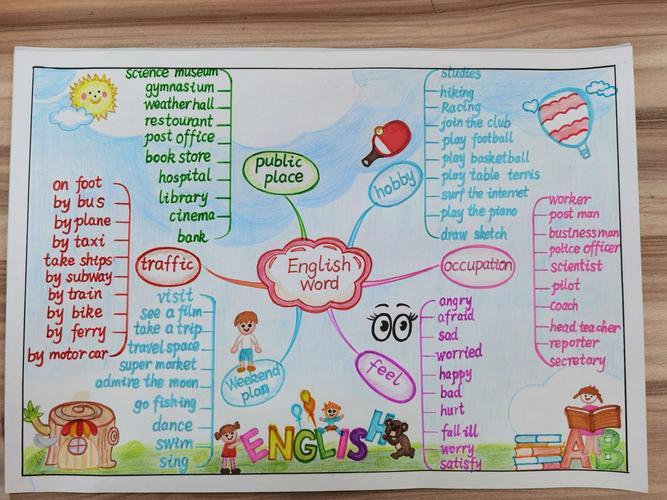 English
word
public
place
science museum
gymnasium
weatherhall
restaurant
post office
book store
hospital
library
cinema
bank
hobby
studies
hiking
Racing
join the club
play football
play basketball
play table terris
surf the internet
play the piano
draw sketch
traffic
on foot
by bus
by plane
by taxi
take ships
by subway
by train
by bike
by ferry
by motor car
occupation
worker
post man
businessman
police officer
scientist
pilot
coach
head teacher
reporter
secretary
Weekend
plan
visit
see a film
take a trip
travel space
super market
admire the moon
go fishing
dance
swim
sing
feel
angry
afraid
sad
worried
happy
bad
hurt
fall ill
worry
satisfy
ENGLISH
AB